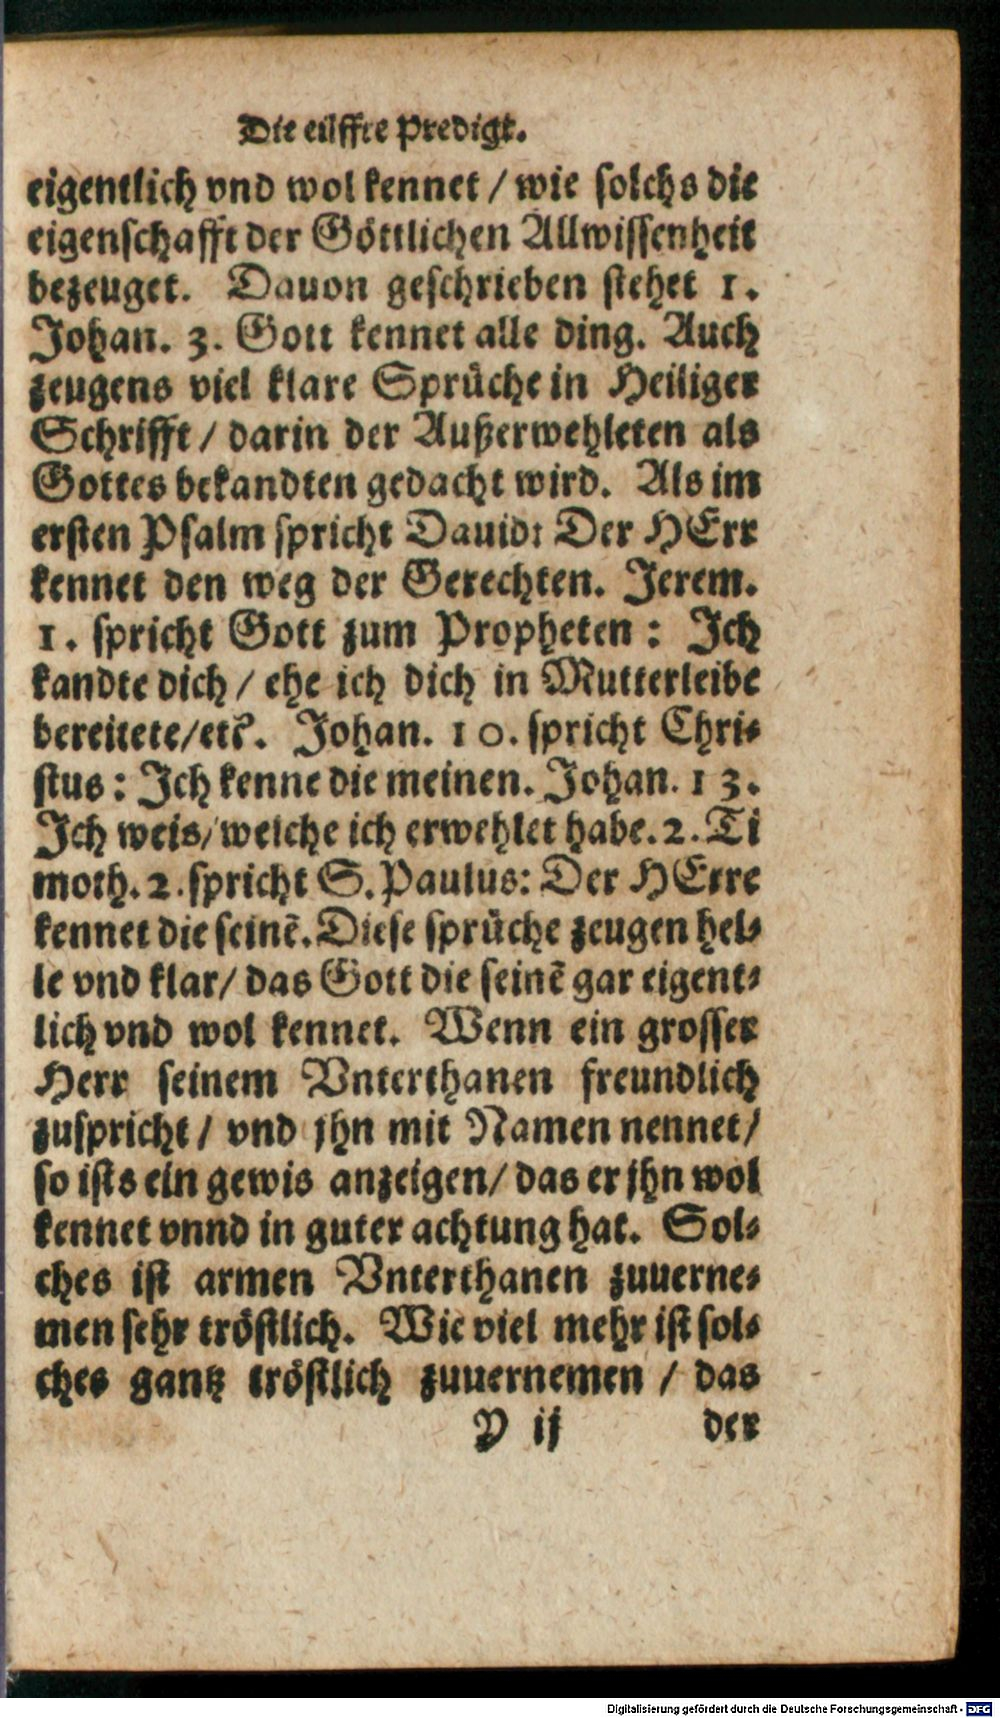 Die eilffte Predigt.
eigentlich vnd wol kennet / wie solchs die
eigenschafft der Göttlichen Allwissenheit
bezeuget. Dauon geschrieben stehet 1.
Johan. 3. Gott kennet alle ding. Auch
zeugens viel klare Sprüche in Heiliger
Schrifft / darin der Außerwehleten als
Gottes bekandten gedacht wird. Als im
ersten Psalm spricht Dauid: Der HErr
kennet den weg der Gerechten. Jerem.
1. spricht Gott zum Propheten: Jch
kandte dich / ehe ich dich in Mutterleibe
bereitete/etc. Johan. 10. spricht Chri-
stus: Jch kenne die meinen. Johan. 13.
Jch weis/welche ich erwehlet habe. 2. Ti
moth. 2. spricht S. Paulus: Der HErre
kennet die seinē. Diese sprüche zeugen hel-
le vnd klar/ das Gott die seinē gar eigent-
lich vnd wol kennet. Wenn ein grosser
Herr seinem Vnterthanen freundlich
zuspricht / vnd jhn mit Namen nennet/
so ists ein gewis anzeigen/ das er jhn wol
kennet vnnd in guter achtung hat. Sol-
ches ist armen Vnterthanen zuuerne-
men sehr tröstlich. Wie viel mehr ist sol-
ches gantz tröstlich zuuernemen / das
P ij der
Digitalisierung gefördert durch die Deutsche Forschungsgemeinschaft - DFG